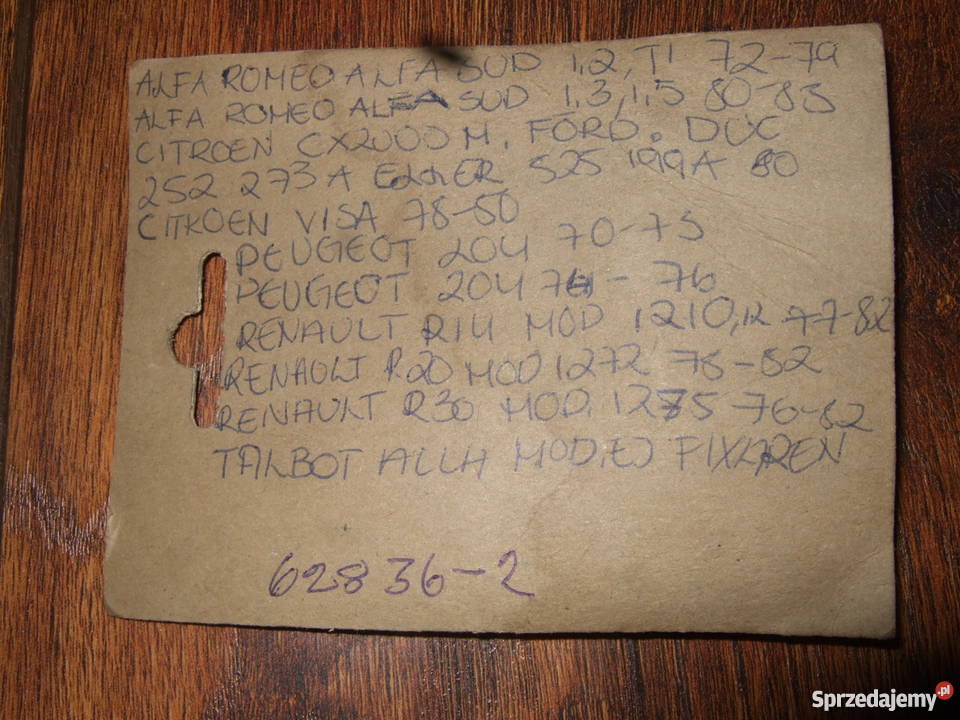 ALFA ROMEO ALFA SUD 1,2, TI 72-79
ALFA ROMEO ALFA SUD 1,3, 1,5 80-83
CITROEN CX2000 M. FORD. DUC
252 273 A ELLER 525 1919A 80
CITROEN VISA 78-80
PEUGEOT 204 70-75
PEUGEOT 204 74-76
RENAULT R14 MOD 1210, 12 77-82
RENAULT R20 MOD 1272 75-82
RENAULT R30 MOD. 1275 76-82
TALBOT ALLA MOD, EJ FIXAREN
62836-2
Sprzedajemy.pl